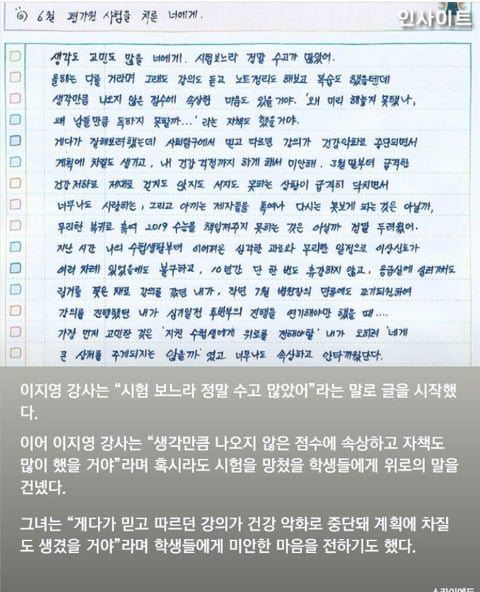 6월 평가원 시험을 치른 너에게.
인사이트
생각도 고민도 많을 너에게. 시험보느라 정말 수고가 많았어.
올해는 다를 거라며 그래도 강의도 듣고 노트정리도 해보고 복습도 했을텐데
생각만큼 나오지 않은 점수에 속상한 마음도 있을거야. '왜 미리 해놓지 못했나,
왜 남들만큼 독하지 못할까...' 라는 자책도 했을거야.
게다가 잘해보려했는데 사회탐구에서 믿고 따르던 강의가 건강악화로 중단되면서
계획에 차질도 생기고, 내 건강 걱정까지 하게 해서 미안해. 3월말부터 급격한
건강저하로 제대로 걷지도 앉지도 서지도 못하는 상황이 급격히 닥치면서
너무나도 사랑하는, 그리고 아끼는 제자들을 혹여나 다시는 못보게 되는 것은 아닐까,
무리한 복귀로 혹여 2019 수능을 책임져주지 못하는 것은 아닐까 정말 두려웠어.
지난 시간 나의 수험생활부터 이어져온 심각한 과로와 무리한 일정으로 이상신호가
여러 차례 있었음에도 불구하고, 10년간 단 한 번도 휴강하지 않고, 응급실에 실려가서도
링거를 꽂은 채로 강의를 갔던 내가, 작년 7월 병원장의 만류에도 조기퇴원하여
강의를 진행했던 내가 심기일전 후반부의 진행을 연기해야만 했을 때....
가장 먼저 고민한 것은 '지친 수험생에게 위로를 전해야할 내가 오히려 네게
큰 상처를 주게되지는 않을까' 였고 너무나도 속상하고 안타까웠단다.
이지영 강사는 “시험 보느라 정말 수고 많았어”라는 말로 글을 시작했
다.
이어 이지영 강사는 “생각만큼 나오지 않은 점수에 속상하고 자책도
많이 했을 거야”라며 혹시라도 시험을 망쳤을 학생들에게 위로의 말을
건넸다.
그녀는 “게다가 믿고 따르던 강의가 건강 악화로 중단돼 계획에 차질
도 생겼을 거야”라며 학생들에게 미안한 마음을 전하기도 했다.
스카이에듀